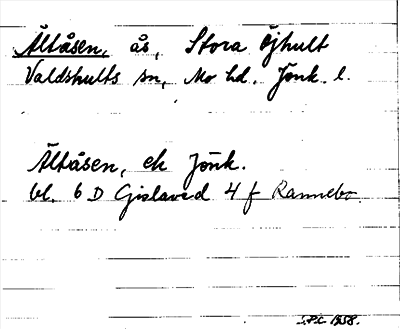 Ältåsen, ås, Stora Öjhult
Valdshults sn, Mo hd. Jönk. l.
Ältåsen, ek Jönk.
bl. 6 D Gislaved 4 f Rannebo
1958.